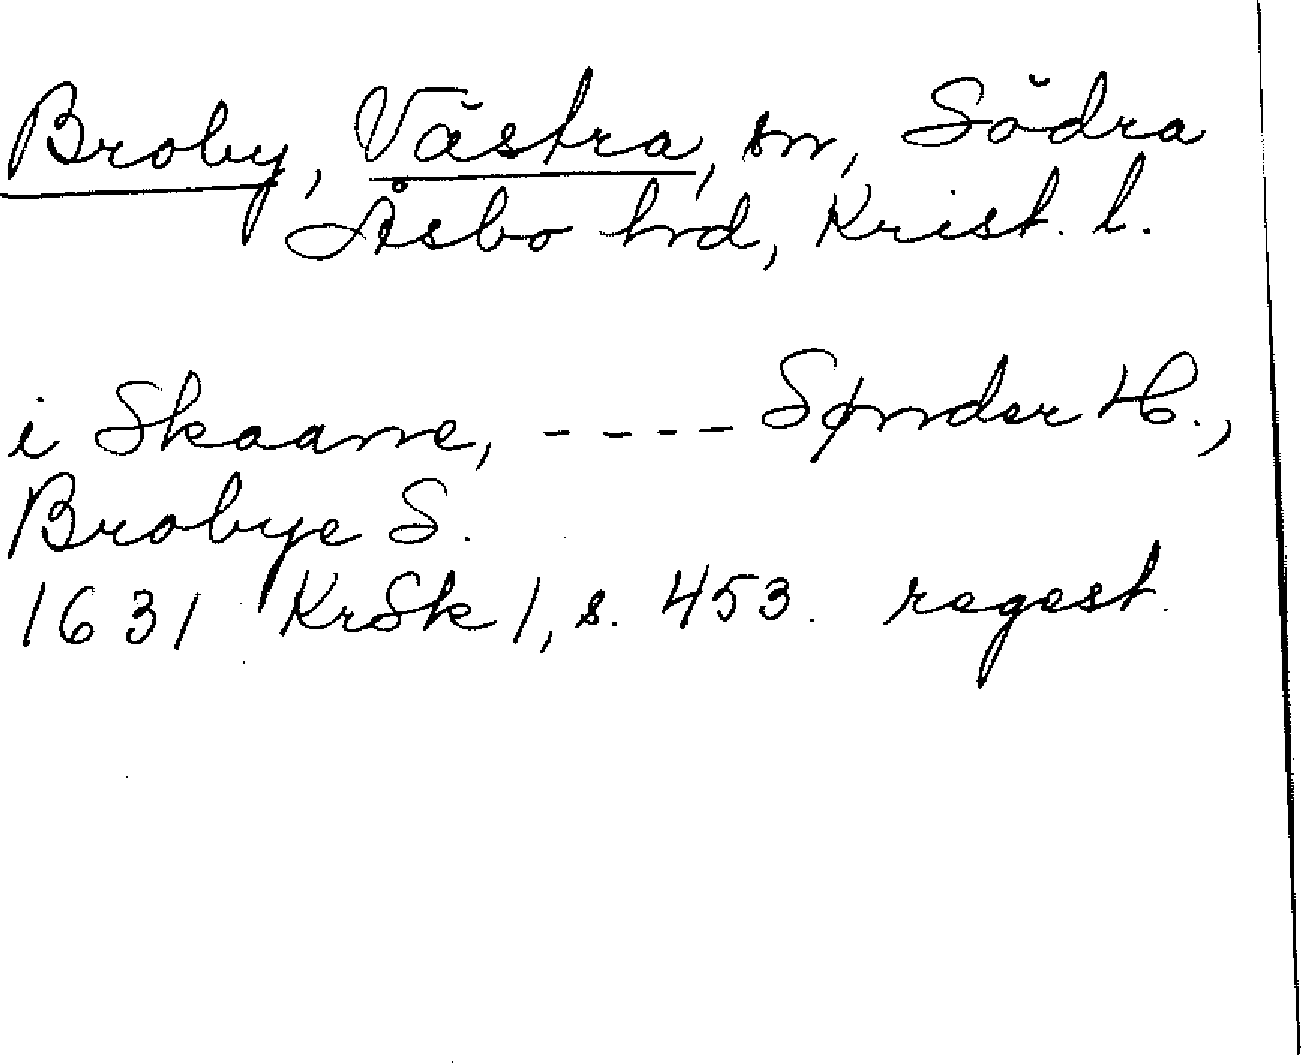 Broby, Västra, sn, Södra
Åsbo hrd, Krist. l.
i Skaane, ---- Sønder H.,
Brobye S.
1631 KrSk 1, s. 453. regest.